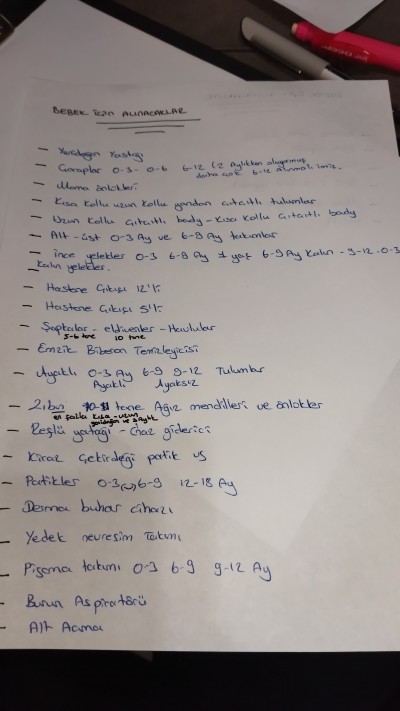 BEBEK İÇİN ALINACAKLAR
- Yenidoğan Yastığı
- Çoraplar 0-3- 0-6 6-12 (2 Aylıktan oluyormuş
daha çok 6-12 almamız lazım.
- Mama önlükleri
- Kısa kollu uzun kollu yandan çıtçıtlı tulumlar
- Uzun kollu Çıtçıtlı body - Kısa kollu Çıtçıtlı body
- Alt-üst 0-3 Ay ve 6-9 Ay takımlar
- İnce yelekler 0-3 6-9 Ay 6-9 Ay Kalın - 9-12. 0-3
Kalın yelekler.
- Hastane Çıkışı 12'li
- Hastane Çıkışı 5'li
- Şapkalar - eldivenler - Havlular
5-6 tane 10 tane
- Emzik Biberon Temizleyicisi
- Ayaklı 0-3 Ay 6-9 9-12 Tulumlar
Ayaklı Ayaksız
- Zıbın tane Ağız mendilleri ve önlükler
en fazla kısa-uzun
yenidoğan ve 3 aylık
- Reflü yatağı - Gaz giderici
- Kiraz Çekirdeği patik vs
- Patikler 0-3 6-9 12-18 Ay
- Derma buhar cihazı
- Yedek nevresim Takımı
- Pijama takımı 0-3 6-9 9-12 Ay
- Burun Aspiratörü
- Alt Açma